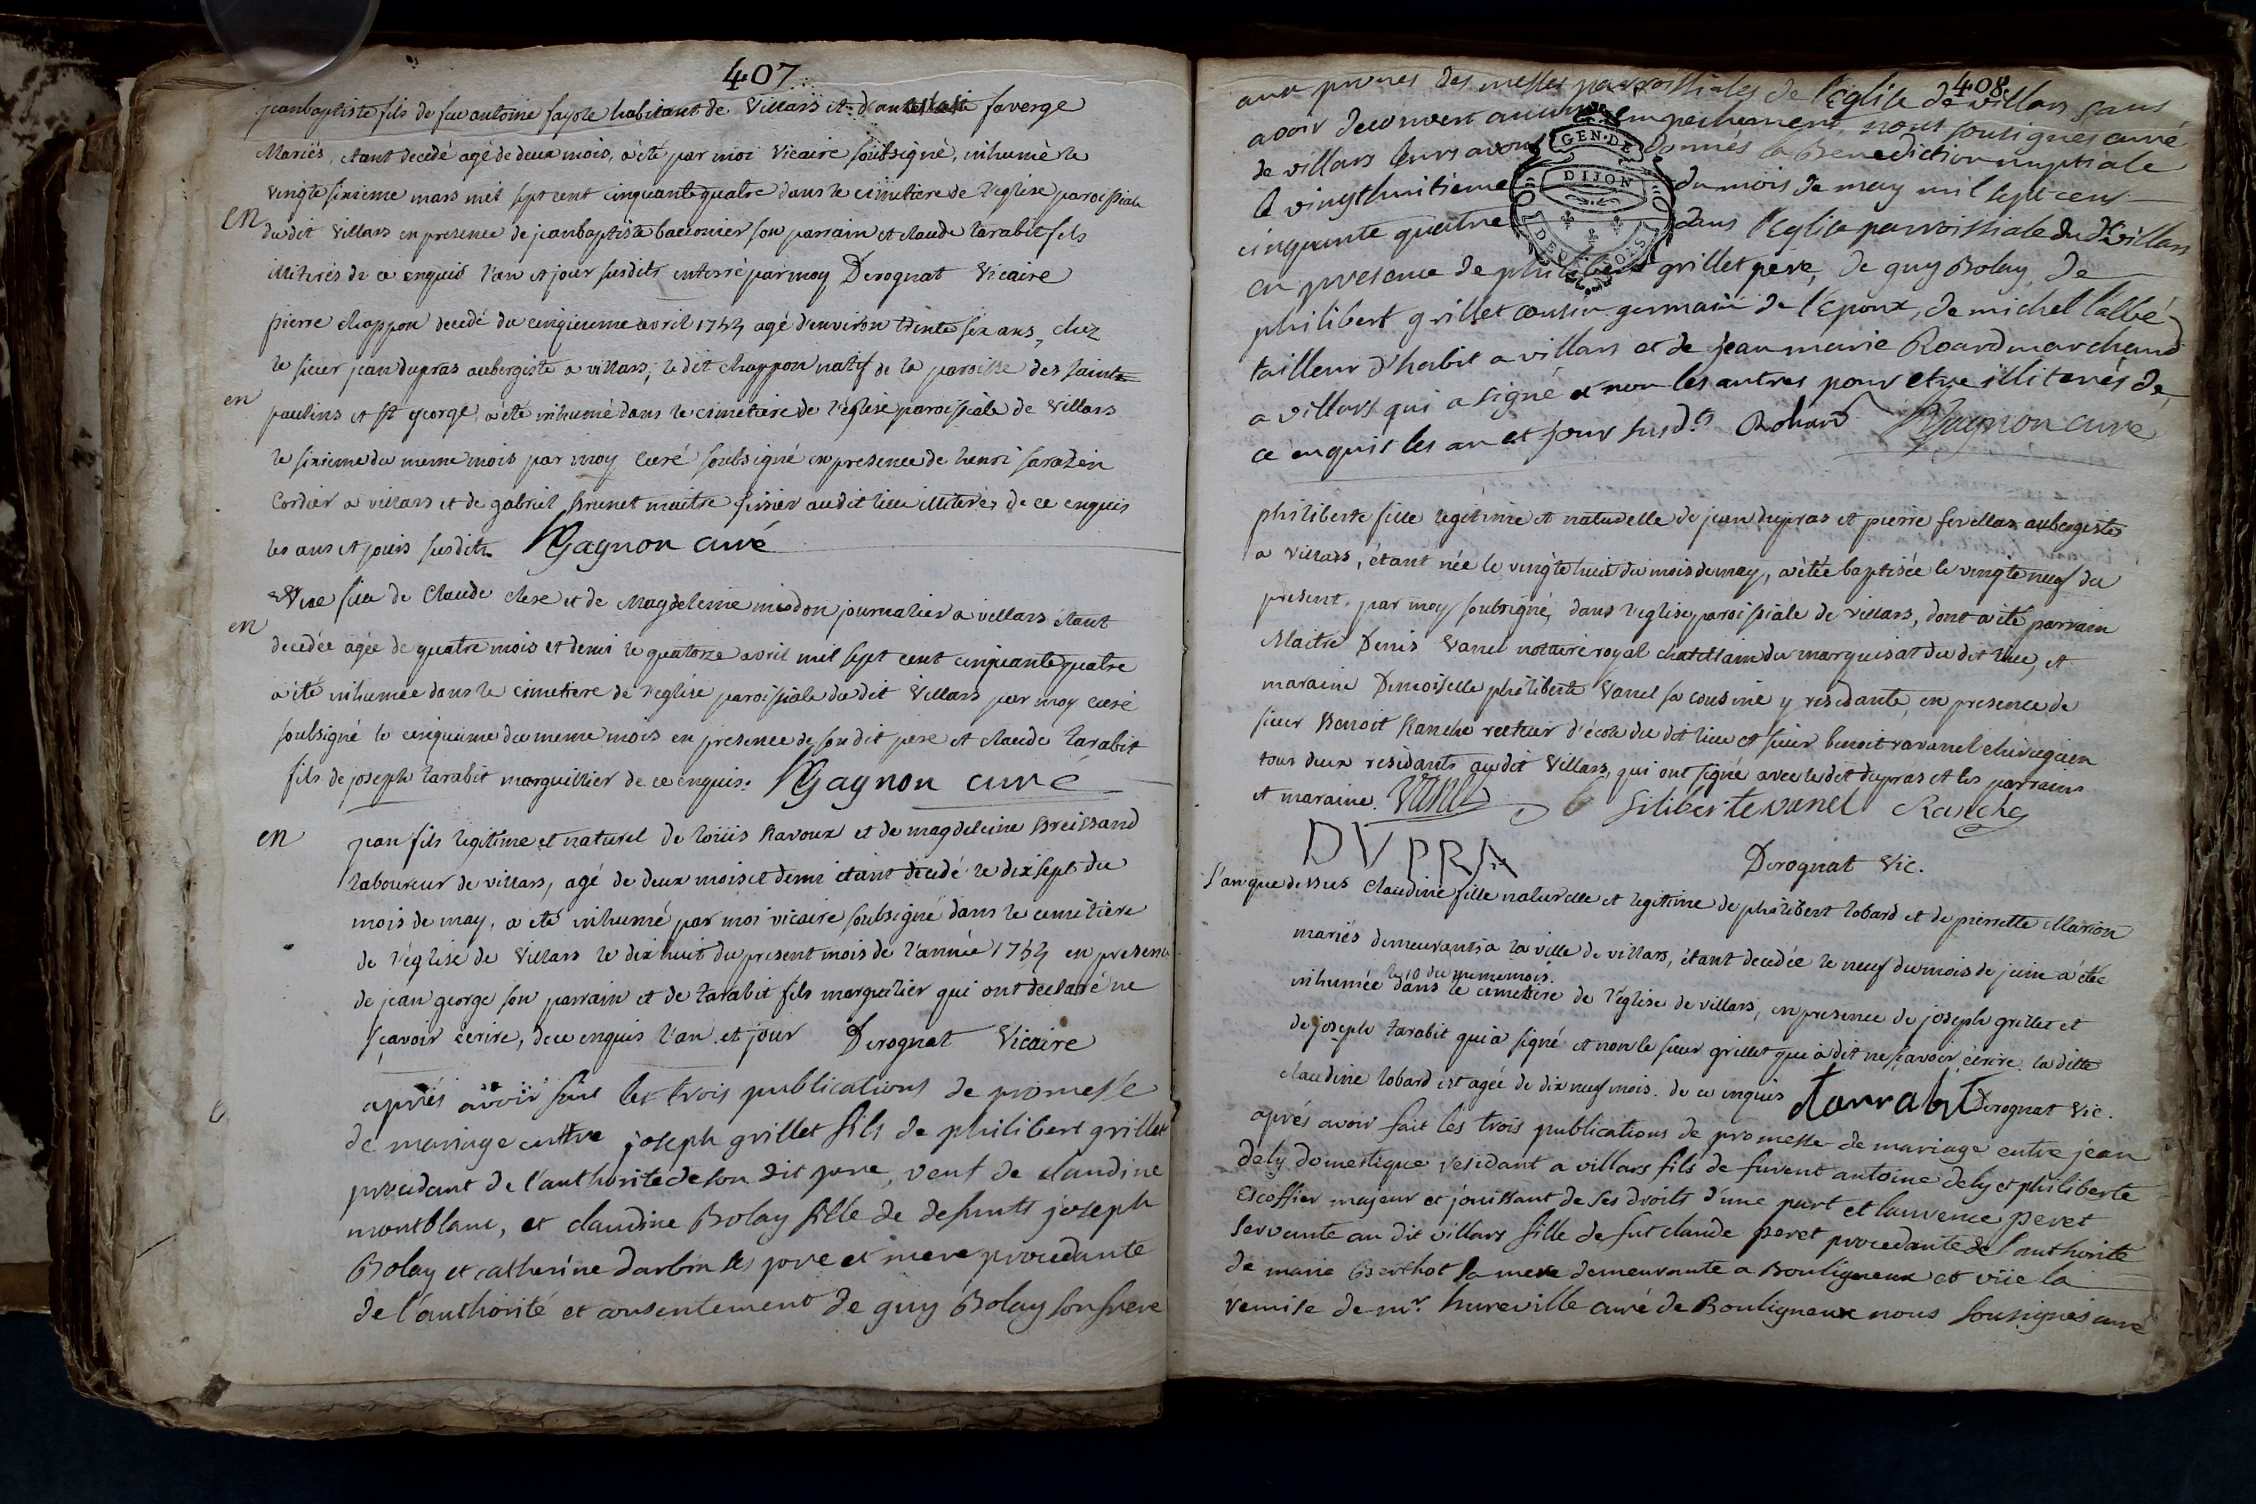 407
jeanbaptiste fils de feu antoine fayole habitant de Villars et d'anthelasie faverge
Mariés, etant decedé agé de deux mois, a été par moi Vicaire soubsigné, inhumé le
vingt sixieme mars mil sept cent cinquante quatre dans le cimetiere de l'eglise paroissiale
en
du dit Villars en presence de jeanbaptiste baconier son parrain et claude tarabit fils
illiterés de ce enquis l'an et jour susdits enterré par moy Derognat Vicaire
pierre chappon decedé du cinquieme avril 1754 agé d'environ trente six ans, chez
le sieur jean dupras aubergiste a villars; le dit chappon natif de la paroisse des saints
en
paulins et st george, a été inhumé dans le cimetiere de l'église paroissiale de Villars
le sixieme du meme mois par moy curé soubsigné en presence de henri sarazin
Cordier a villars et de gabriel Brunet maitre tissier audit lieu illiterés de ce enquis
les ans et jours susdits Gagnon curé
fille de Claude clere et de Magdeleine midon journalier a villars etant
en
decedée agée de quatre mois et demi le quatorze avril mil sept cent cinquante quatre
a été inhumée dans le cimetiere de l'eglise paroissiale du dit Villars par moy curé
soubsigné le cinquieme du meme mois en presence de son dit pere et claude tarabit
fils de joseph tarabit marguillier de ce enquis. Gagnon curé
en
jean fils legitime et naturel de loüis Ravoux et de magdeleine Breissand
laboureur de villars, agé de deux mois et demi etant decedé le dix sept du
mois de may, a été inhumé par moi vicaire soubsigné dans le cimetiere
de l'église de Villars le dix huit du present mois de l'année 1754 en presence
de jean george son parrain et de tarabit fils marguilier qui ont declaré ne
sçavoir écrire, de ce enquis l'an et jour Derognat Vicaire
aprés avoir fait les trois publications de promesse
de mariage entre joseph grillet fils de philibert grillet
procedant de l'authorité de son dit pere, veuf de claudine
montblanc, et claudine Bolay fille de defunts joseph
Bolay et catherine darbin ses pere et mere procedante
de l'authorité et consentement de guy Bolay son frere
408
aux prones des messes parroissiales de l'Eglise de villars sans
avoir decouvert aucun empechement, nous soussignés curé
de villars leurs avons donnés la Benediction nuptiale
le vingthuitieme du mois de may mil sept cens
cinquante quatre dans l'Eglise parroissiale du dt villars
GEN. DE
DIJON
en presence de philibert grillet pere, de guy Bolay, de
philibert grillet cousin germain de l'Epoux, de michel l'abbé
tailleur d'habit a villars et de jean marie Roard marchand
a villars qui a signé et non les autres pour etre illiterés de
ce enquis les an et jour susdts Rohard Gagnon cure
philiberte fille legitime et naturelle de jean dupras et pierre fevellas aubergistes
a Villars, étant née le vingt huit du mois de may, a étée baptisée le vingt neuf du
present, par moy soubsigné, dans l'eglise paroissiale de villars, dont a été parrain
Maitre Denis Vanel notaire royal chatelain du marquisat du dit lieu, et
maraine Demoiselle philiberte Vanel sa cousine y residante, en presence de
sieur Benoit Ranche recteur d'école du dit lieu et sieur benoit ravanel chirurgien
tous deux residants audit Villars, qui ont signé avec le dit dupras et les parrain
et maraine. Vanel filiberte vanel Ranche
DVPRA
Derognat Vic.
L'an que dessus Claudine fille naturelle et legitime de philibert lobard et de pierrette Marion
mariés demeurants a la ville de villars, étant decedée le neuf du mois de juin a étée
le 10 du meme mois.
inhumée dans le cimetiere de l'église de villars, en presence de joseph grillet et
de joseph tarabit qui a signé et non le sieur grillet qui a dit ne sçavoir écrire. la ditte
claudine lobard est agée de dix neuf mois. de ce enquis tarrabit Derognat Vic.
aprés avoir fait les trois publications de promesse de mariage entre jean
dely domestique residant a villars fils de furent antoine dely et philiberte
Escoffier majeur et jouissant de ses droits d'une part et laurence peret
servante au dit villars fille de fut claude peret procedante de l'authorité
de marie Berthot sa mere demeurante a Bouligneux et vüe la
remise de mr. hureville curé de Bouligneux nous soussignés curé